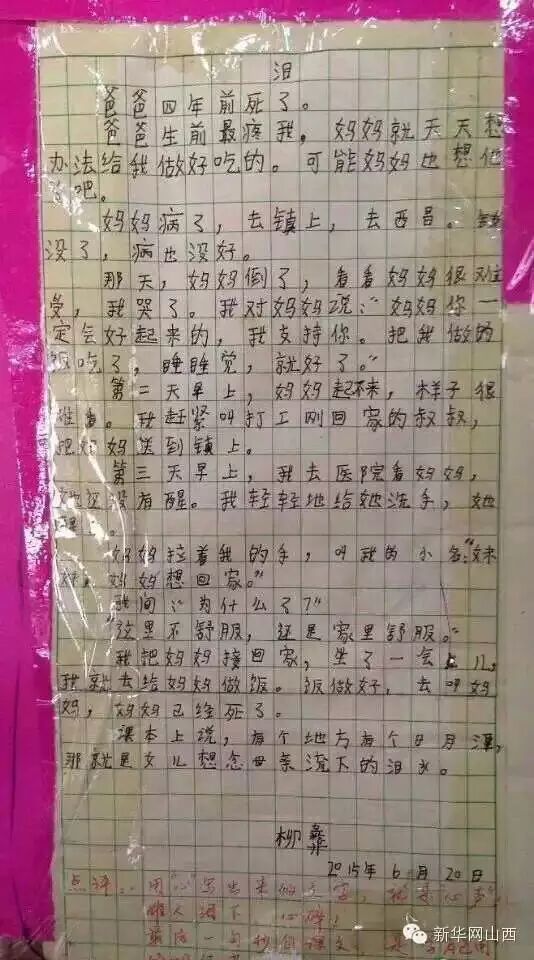 泪
爸爸四年前死了。
爸爸生前最疼我，妈妈就天天想
办法给我做好吃的。可能妈妈也想他
了吧。
妈妈病了，去镇上，去西昌。钱
没了，病也没好。
那天，妈妈倒了，看看妈妈很难
受，我哭了。我对妈妈说：“妈妈你一
定会好起来的，我支持你。把我做的
饭吃了，睡睡觉，就好了。”
第二天早上，妈妈起不来，样子很
难看。我赶紧叫打工刚回家的叔叔，
把妈妈送到镇上。
第三天早上，我去医院看妈妈，
她还没有醒。我轻轻地给她洗手，她
醒了。
妈妈拉着我的手，叫我的小名：“妹
妹，妈妈想回家。”
我问：“为什么了？”
“这里不舒服，还是家里舒服。”
我把妈妈接回家，坐了一会儿，
我就去给妈妈做饭。饭做好，去叫妈
妈，妈妈已经死了。
课本上说，有个地方有个日月潭，
那就是女儿想念母亲流下的泪水。
柳彝
2015年6月20日
点评：用“心”写出来的文字，就是“心声”，
催人泪下 心碎！
新华网山西